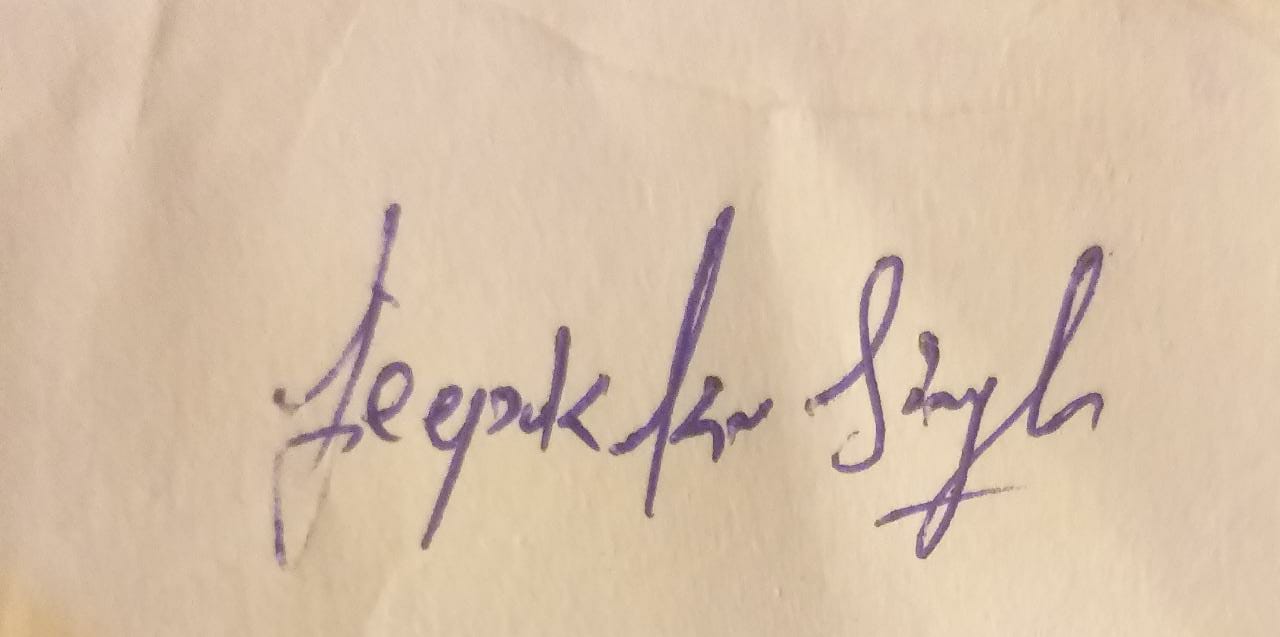 Deepak Kr Singh